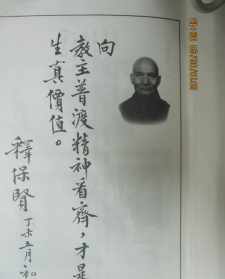 向
教主普渡精神看齊，才是
生真價值。
釋保賢 丁未五月